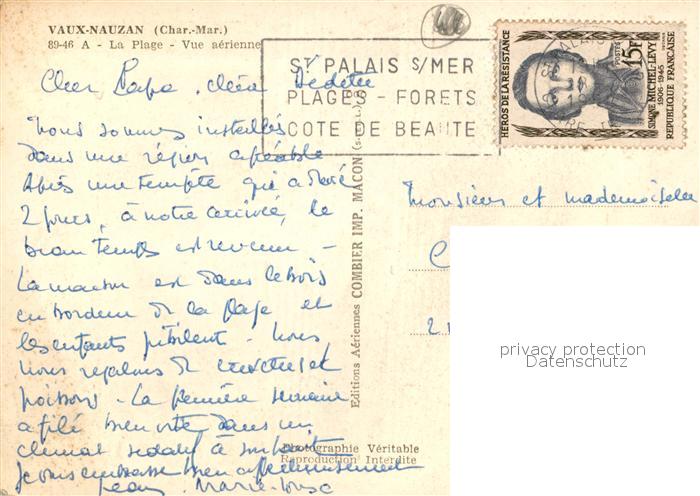 VAUX-NAUZAN (Char.-Mar.)
89-46 A - La Plage - Vue aérienne
Cher Papa, chère Dédette
Nous sommes installés
dans une région agréable
Après une tempête qui a duré
2 jours, à notre arrivée, le
beau temps est revenu -
La maison est dans le bois
en bordure de la plage et
les enfants jubilent - Nous
nous régalons de crustacés et
poissons - La première semaine
a filé bien vite dans un
climat sédatif à souhait
Je vous embrasse bien affectueusement
Jean Marie-Louise
Editions Aériennes COMBIER IMP. MACON
Photographie Véritable
Reproduction Interdite
ST PALAIS S/MER
PLAGES - FORETS
COTE DE BEAUTE
HÉROS DE LA RÉSISTANCE
POSTES
15F
SIMONE MICHEL-LEVY
1906-1945
REPUBLIQUE FRANÇAISE
Monsieur et mademoiselle
privacy protection
Datenschutz